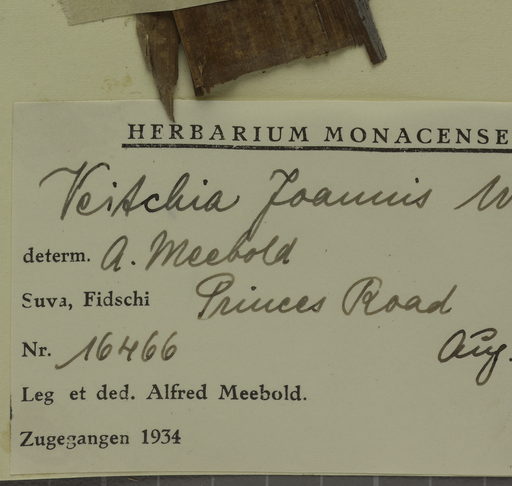 HERBARIUM MONACENSE
Veitchia Joannis W
determ. A. Meebold
Suva, Fidschi Princes Road
Nr. 16466 Aug.
Leg et ded. Alfred Meebold.
Zugegangen 1934